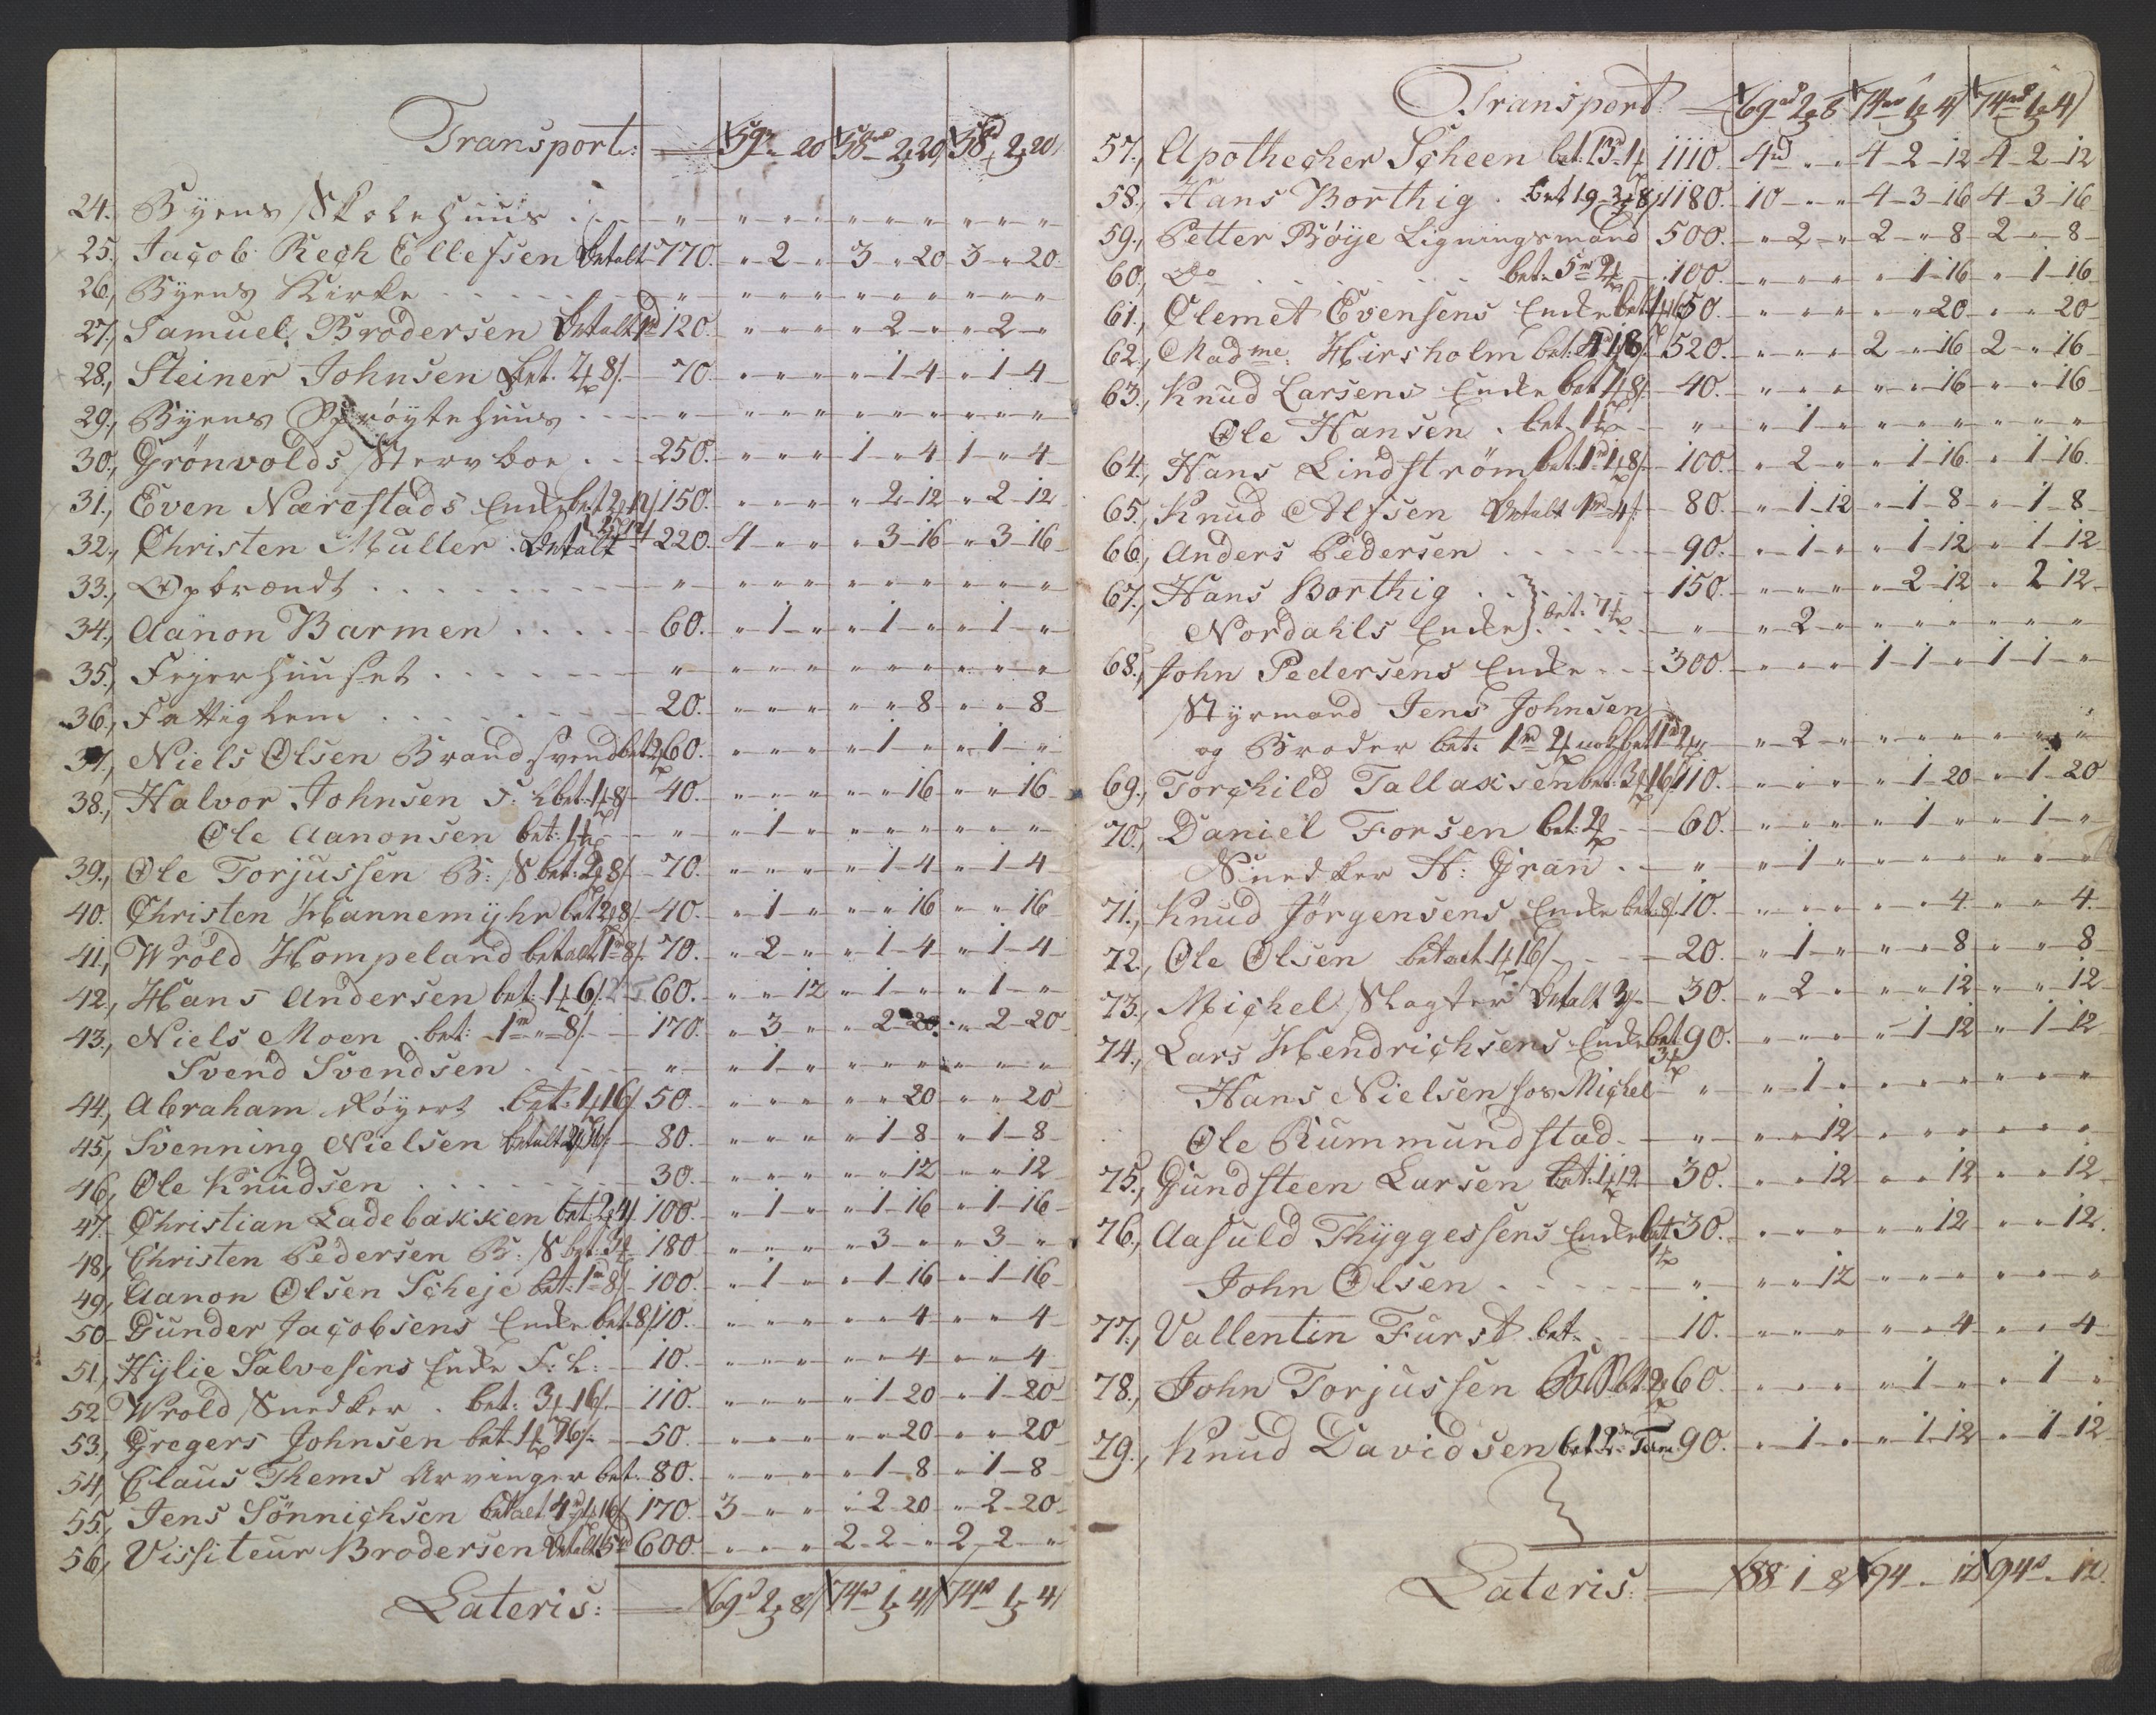 Transport: 59 " 20 58 2 20 58 2 20
24. Byens Skolehuus " " " " " " " " " "
25. Jacob Rech Ellefsen betalt 770. " 2 " 3 " 20 3 " 20
26, Byens Kirke " " " " " " " " " "
27, Samuel Brodersen betalt 120. " " " " 2 " " 2 "
28, Steiner Johnsen bet. 2 8 70 " " " " 1 4 " 1 4
29, Byens Sprøytehuus " " " " " " " " " "
30, Grönvolds Stervboe 250. " " " 1 " 4 1 " 4
31, Even Nærestads Enke bet 2 12 150. " " " " 2 12 " 2 12
32, Christen Muller. betalt 220. 4 " " " 3 16 " 3 16
33, Opbrændt " " " " " " " " " "
34, Aanon Barmen 60. " 1 " " 1 " " 1 "
35, Fejerhuuset " " " " " " " " " "
36, Fattighem 20. " " " " " 8 " " 8
37, Niels Olsen Brandsvend bet 2 60. " " " " 1 " " 1 "
38, Halvor Johnsen bet: 1 8 40. " " " " " 16 " " 16
Ole Aanonsen bet: 1 " " 1 " " " " " " "
39, Ole Torjussen B: S bet: 2 8 70. " " " " 1 4 " 1 4
40. Christen Hannemyhr bet 2 8 40. " 1 " " " 16 " " 16
41, Wrold Hompeland betalt 1 8 70. " 2 " " 1 4 " 1 4
42, Hans Andersen bet: 1 6 60. " " 12 " 1 " " 1 "
43, Niels Moen bet: 1 " 8 170. " 3 " " 2 20 " 2 20
Svend Svendsen " " 1 " " " " " " "
44, Abraham Røyert bet: 1 16 50 " " " " " 20 " " 20
45, Svenning Nielsen betalt 80. " " " " 1 8 " 1 8
46, Ole Knudsen 30. " " " " " 12 " " 12
47. Christian Ladebakken bet: 2 4 100. " 1 " " 1 16 " 1 16
48, Christen Pedersen B: S bet: 3 180 " " " " 3 " " 3 "
49, Aanon Olsen Scheje bet: 1 8 100. " 1 " " 1 16 " 1 16
50 Gunder Jacobsens Enke bet. 8 10. " " " " " 4 " " 4
51, Hylie Salvesens Enke F: L: 10. " " " " " 4 " " 4
52 Wrold Snedker. bet: 3 16 110. " " " " 1 20 " 1 20
53, Gregers Johnsen bet 1 16 50. " " " " " 20 " " 20
54, Claus Thems Arvinger bet. 80. " " " " 1 8 " 1 8
55, Jens Sönnichsen betalt 4 1 16 170. 3 " " " 2 20 " 2 20
56, Vissiteur Brodersen betalt 5 600. " " " 2 2 " 2 2 "
Lateris: 69 2 8 74 1 4 74 1 4
Transport 69 2 8 74 1 4 74 1 4
57, Apothecher Scheen bet: 13 1 1110. 4 " " 4 2 12 4 2 12
58, Hans Borthig. bet 19 3 8 1180. 10 " " 4 3 16 4 3 16
59, Petter Böye Ligningsmand 500. " 2 " 2 " 8 2 " 8
60, Do bet: 5 2 100. " " " " 1 16 " 1 16
61, Clemet Evensens Enke bet 1 16 50. " " " " " 20 " " 20
62, Madme: Hirsholm bet: 4 1 8 520. " " " 2 " 16 2 " 16
63, Knud Larsens Enke bet 1 8 40. " " " " " 16 " " 16
Ole Hansen. bet. 1 " " 1 " " " " " " "
64, Hans Lindström bet: 1 1 8 100. " 2 " " 1 16 " 1 16
65, Knud Alfsen betalt 1 4 80. " 1 12 " 1 8 " 1 8
66, Anders Pedersen 90. " 1 " " 1 12 " 1 12
67, Hans Borthig 150. " " " " 2 12 " 2 12
Nordahls Enke bet: " " 2 " " " " " " "
68, John Pedersens Enke 300. " " " 1 1 " 1 1 "
Styrmand Jens Johnsen
og Broder bet: 1 2 nok bet 1 2 " 2 " " " " " " "
69, Torchild Tallaksen bet: 3 16 110. " " " " 1 20 " 1 20
70, Daniel Forsen bet: 2 60. " " " " 1 " " 1 "
Snedker H: Gran " " 1 " " " " " " "
71, Knud Jörgensens Enke bet: 8 10. " " " " " 4 " " 4
72, Ole Olsen betalt 1 16 20. " 1 " " " 8 " " 8
73, Michel Slagter betalt 3 30. " 2 " " " 12 " " 12
74, Lars Hendrichsens Enke bet 3 90. " " " " 1 12 " 1 12
Hans Nielsen hos Michel " " 1 " " " " " " "
Ole Rummundstad " " " 12 " " " " " "
75, Gundsteen Larsen bet: 1 12 30. " " 12 " " 12 " " 12
76, Aasuld Thyggessens Enke bet 1 30. " " " " " 12 " " 12.
John Olsen " " " 12 " " " " " "
77, Vallentin Furst bet: 10. " " " " " 4 " " 4
78, John Torjussen BS bet: 2 60. " " " " 1 " " 1 "
79, Knud Davidsen bet 90. " 1 " " 1 12 " 1 12
Lateris: 88 1 8 94 " 12 94 " 12.